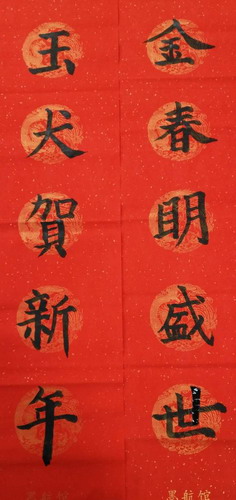 金春明盛世
玉犬賀新年
墨航馆